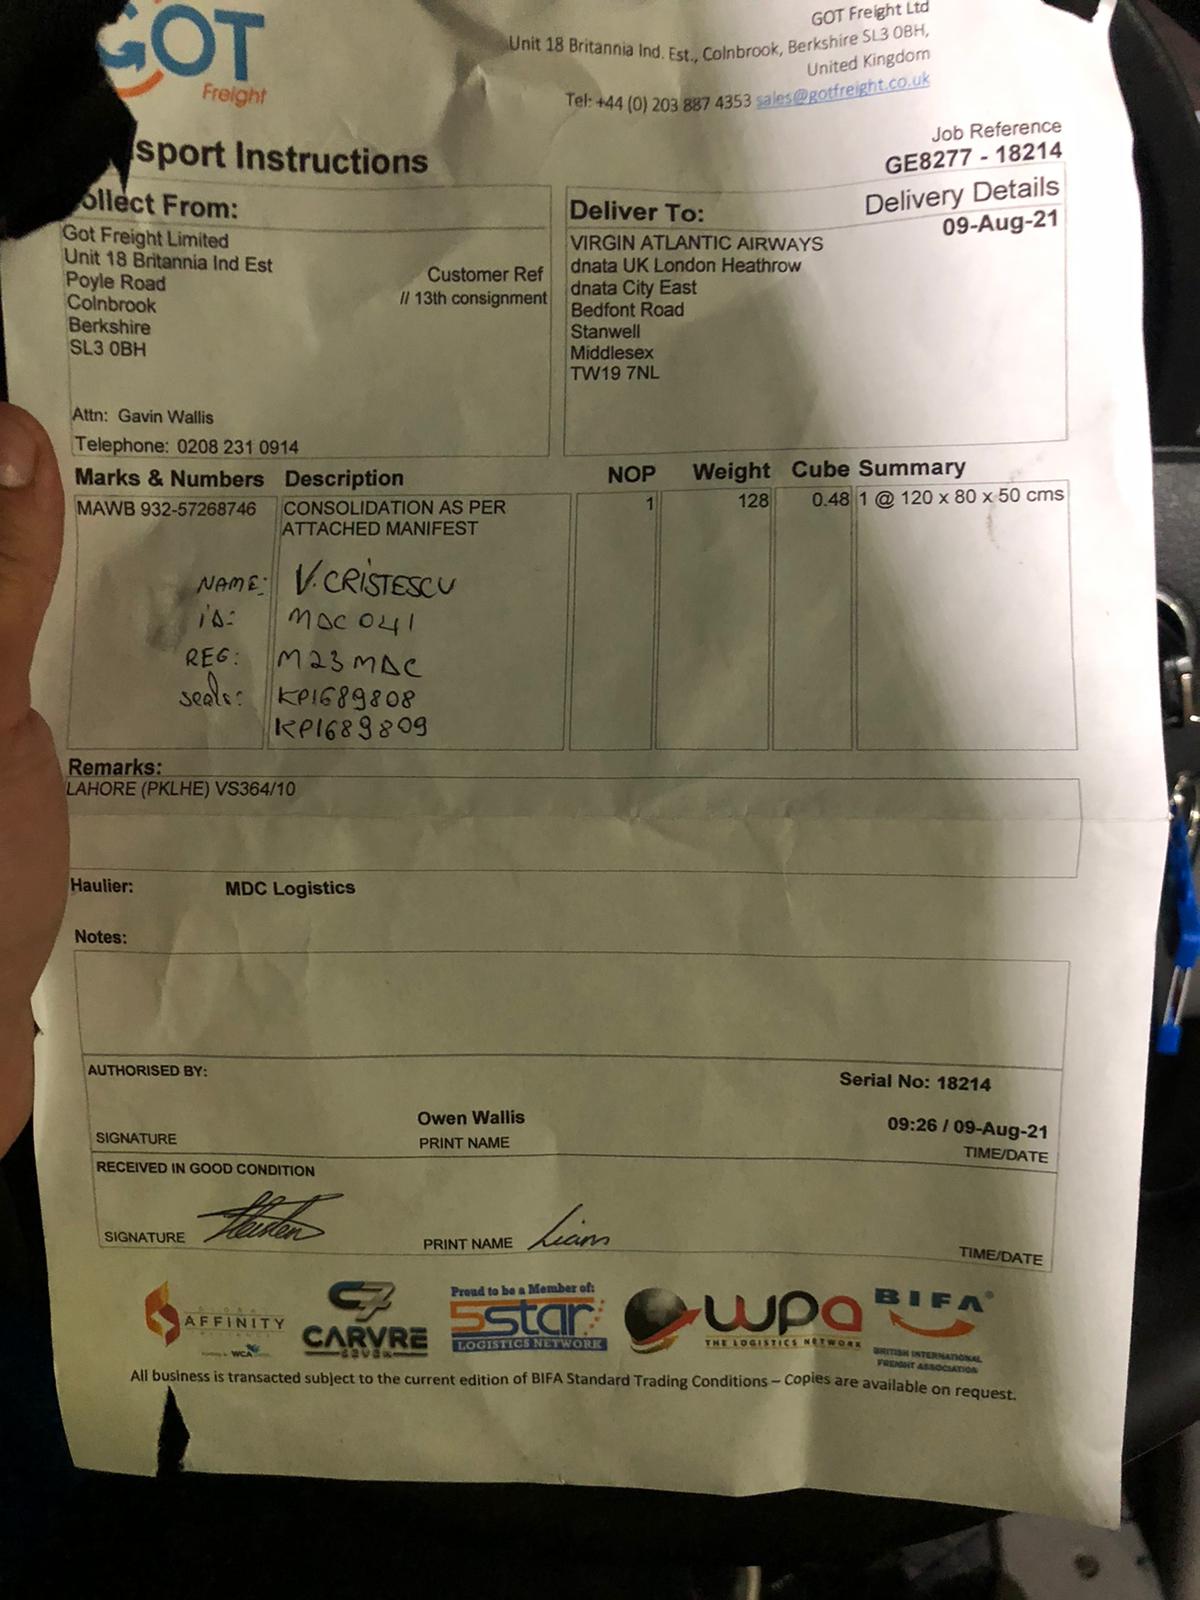 GOT
Freight
GOT Freight Ltd
Unit 18 Britannia Ind. Est., Colnbrook, Berkshire SL3 0BH,
United Kingdom
Tel: +44 (0) 203 887 4353 sales@gotfreight.co.uk
Job Reference
GE8277 - 18214
sport Instructions
ollect From:
Got Freight Limited
Unit 18 Britannia Ind Est
Poyle Road
Colnbrook
Berkshire
SL3 0BH
Customer Ref
// 13th consignment
Attn: Gavin Wallis
Telephone: 0208 231 0914
Deliver To:
Delivery Details
09-Aug-21
VIRGIN ATLANTIC AIRWAYS
dnata UK London Heathrow
dnata City East
Bedfont Road
Stanwell
Middlesex
TW19 7NL
Marks & Numbers Description NOP Weight Cube Summary
MAWB 932-57268746 CONSOLIDATION AS PER 1 128 0.48 1 @ 120 x 80 x 50 cms
ATTACHED MANIFEST
NAME: V. CRISTESCU
iD: MDC 041
REG: M23 MDC
Seals: KP1689808
KP1689809
Remarks:
LAHORE (PKLHE) VS364/10
Haulier: MDC Logistics
Notes:
AUTHORISED BY:
Serial No: 18214
Owen Wallis 09:26 / 09-Aug-21
SIGNATURE PRINT NAME TIME/DATE
RECEIVED IN GOOD CONDITION
SIGNATURE PRINT NAME Liam TIME/DATE
AFFINITY
WCA
C7
CARVRE
SEVEN
Proud to be a Member of:
5star
LOGISTICS NETWORK
wpa
THE LOGISTICS NETWORK
BIFA
BRITISH INTERNATIONAL
FREIGHT ASSOCIATION
All business is transacted subject to the current edition of BIFA Standard Trading Conditions – Copies are available on request.